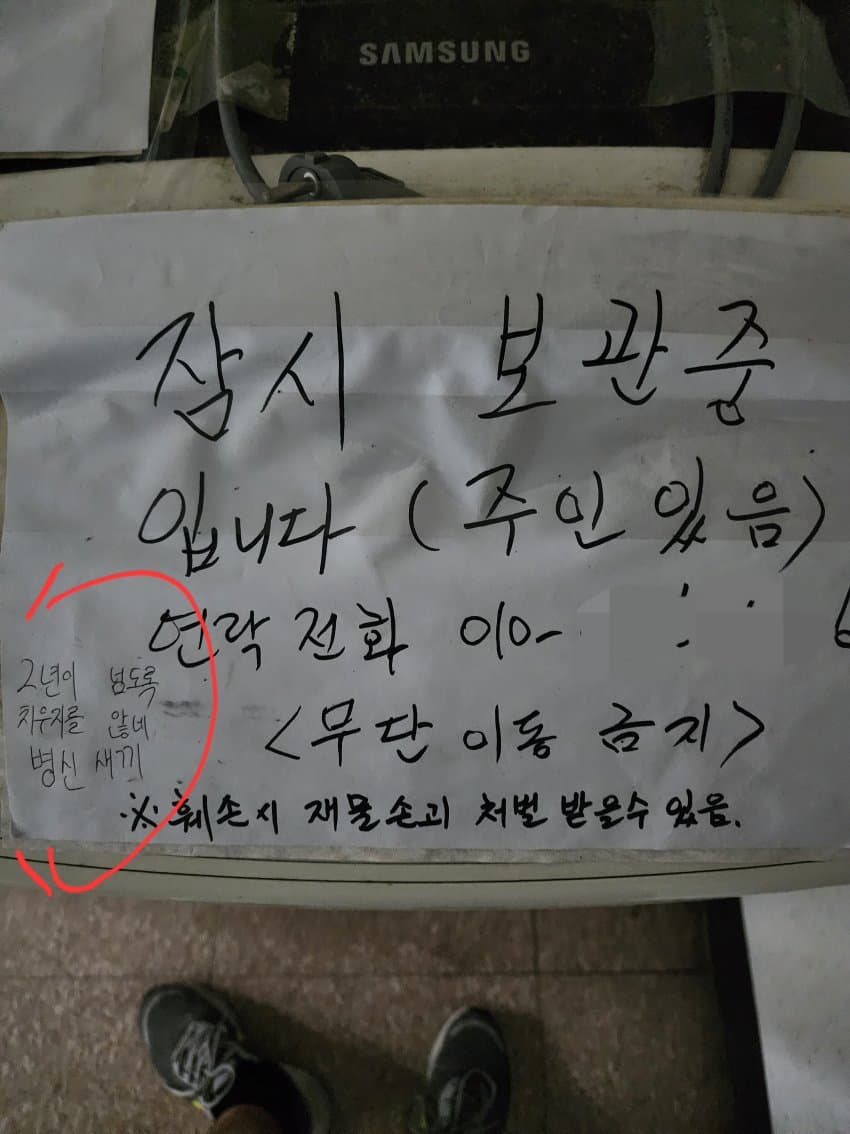 SAMSUNG
잠시 보관중
입니다 (주인있음)
연락전화 010-
<무단이동 금지>
※ 훼손시 재물손괴 처벌 받을수 있음.
2년이 넘도록
치우지를 않네
병신 새끼